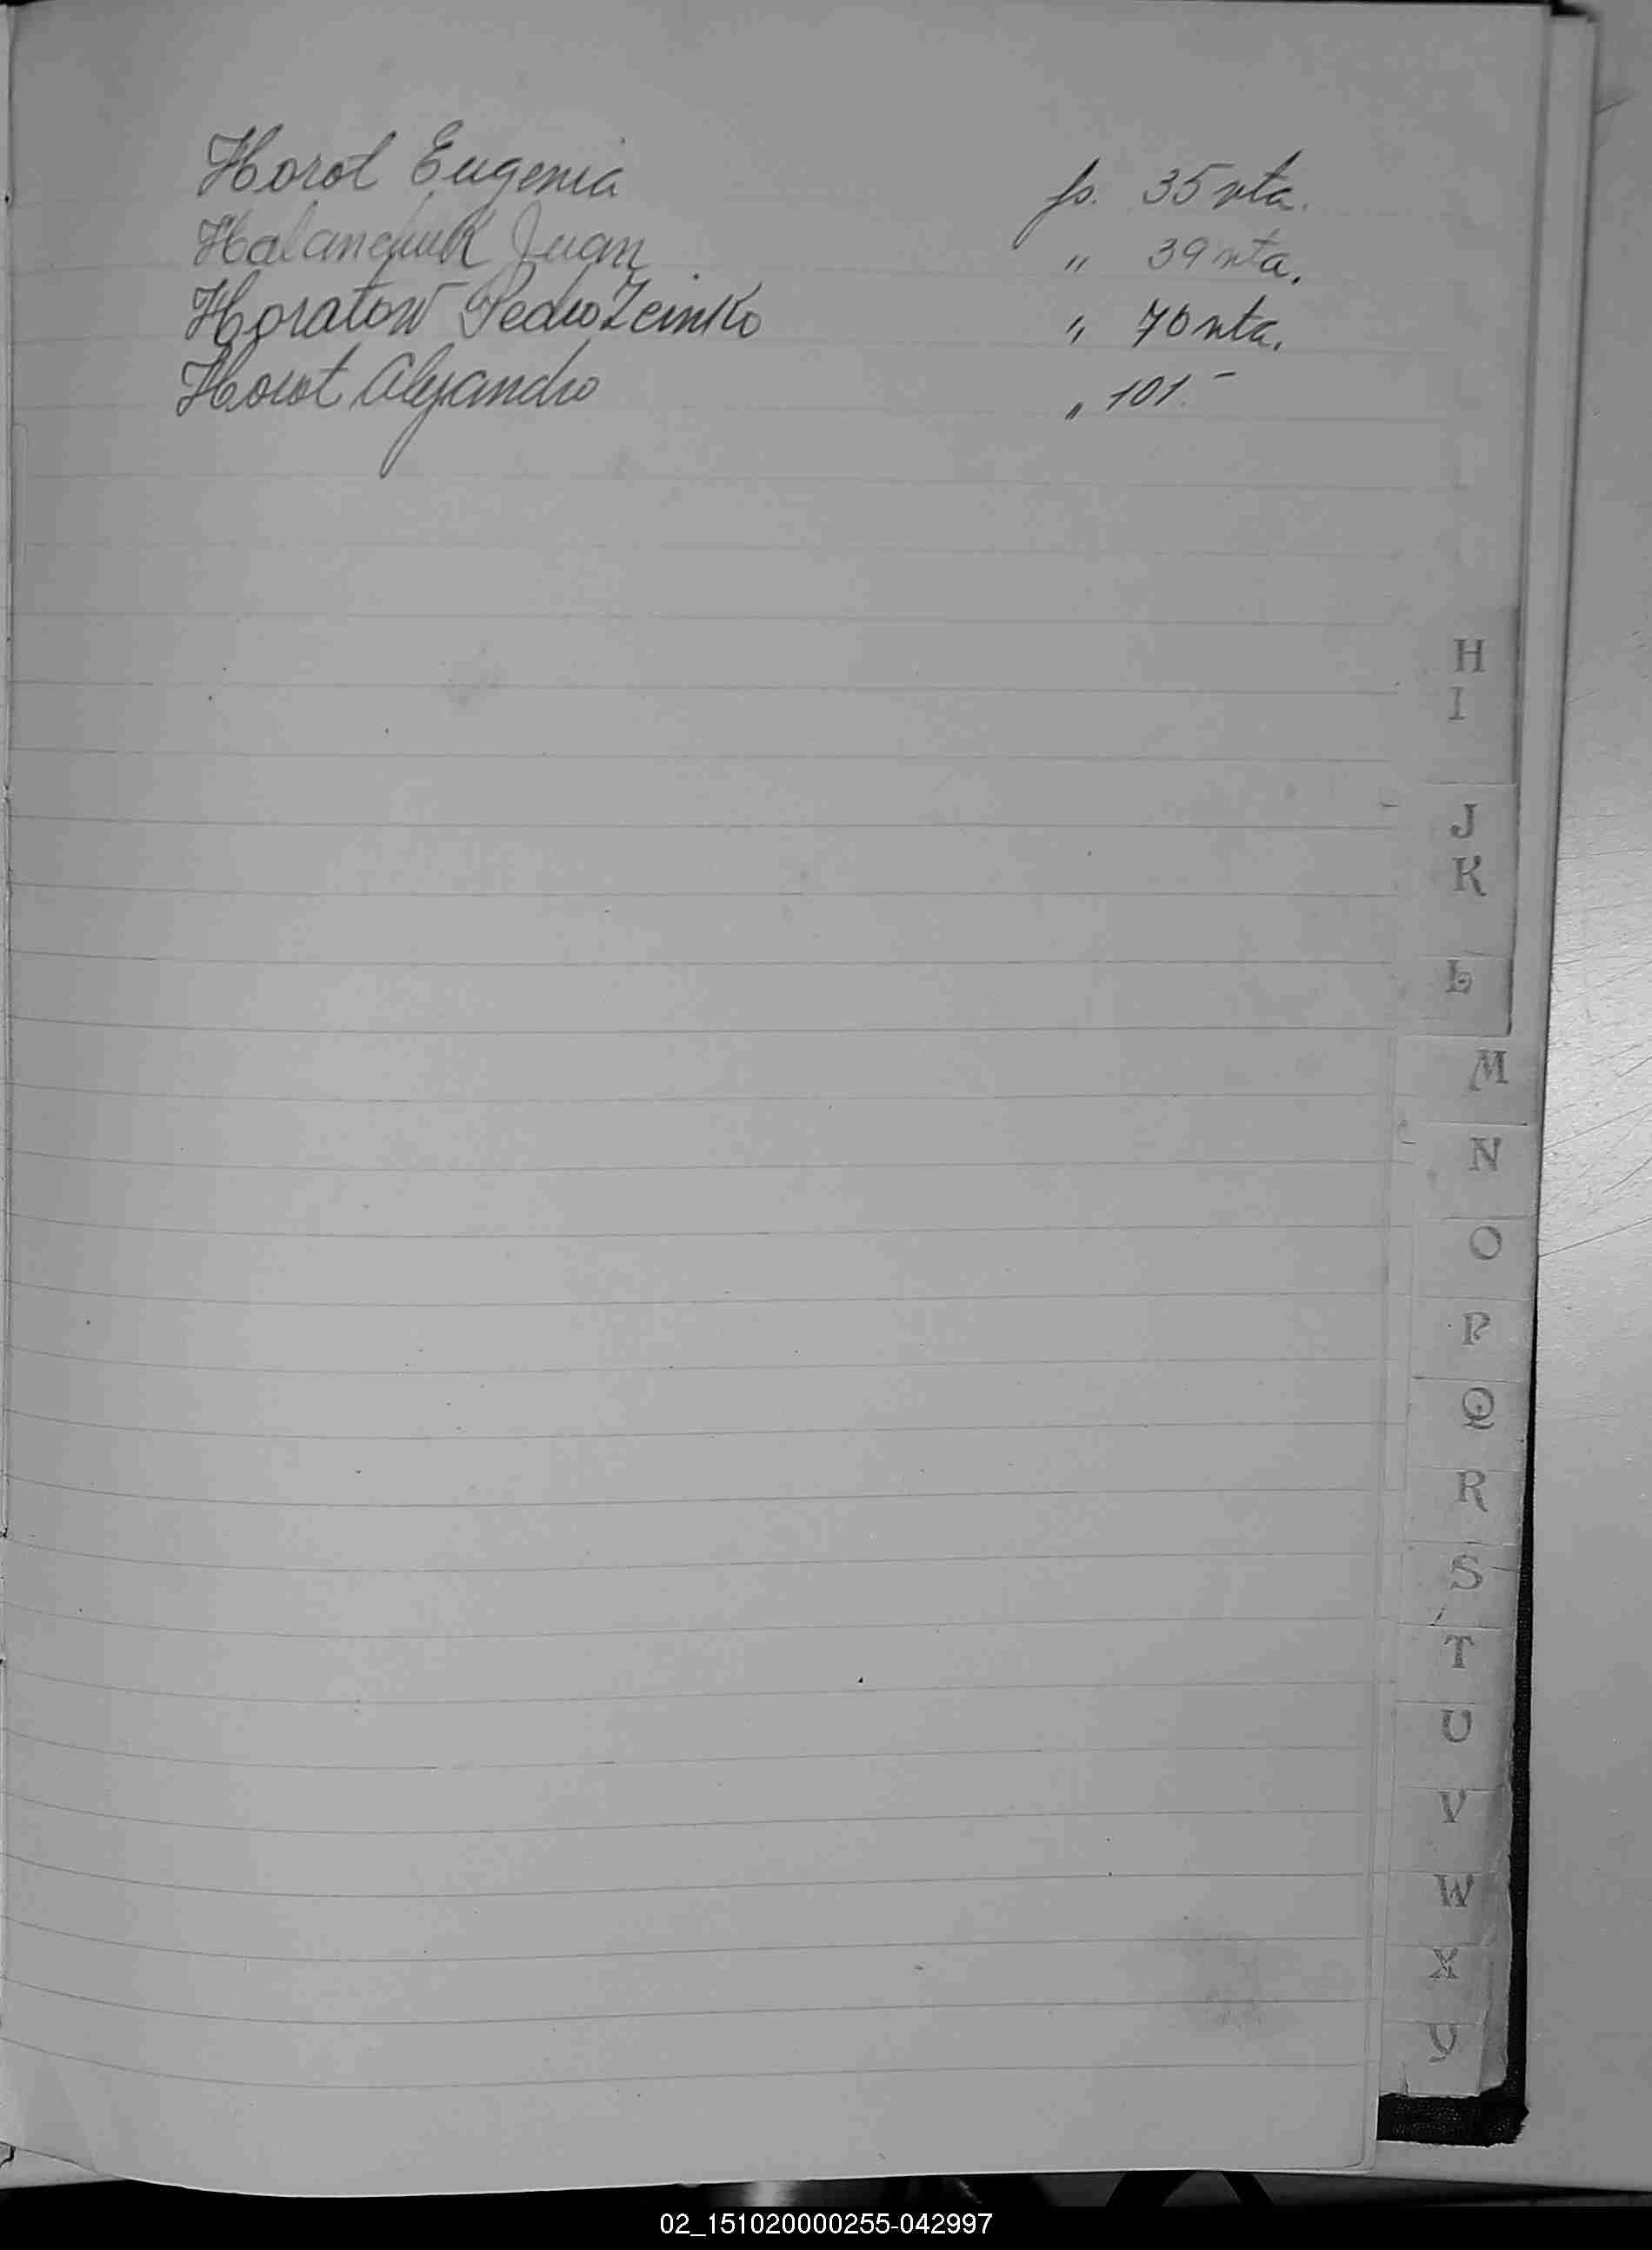 Horol Eugenia fs. 35 vta.
Halanchuk Juan " 39 vta.
Horatow Pedro " 70 vta.
Horot Alejandro " 101.-
H
I
J
K
L
M
N
O
P
Q
R
S
T
U
V
W
X
Y
02_151020000255-042997